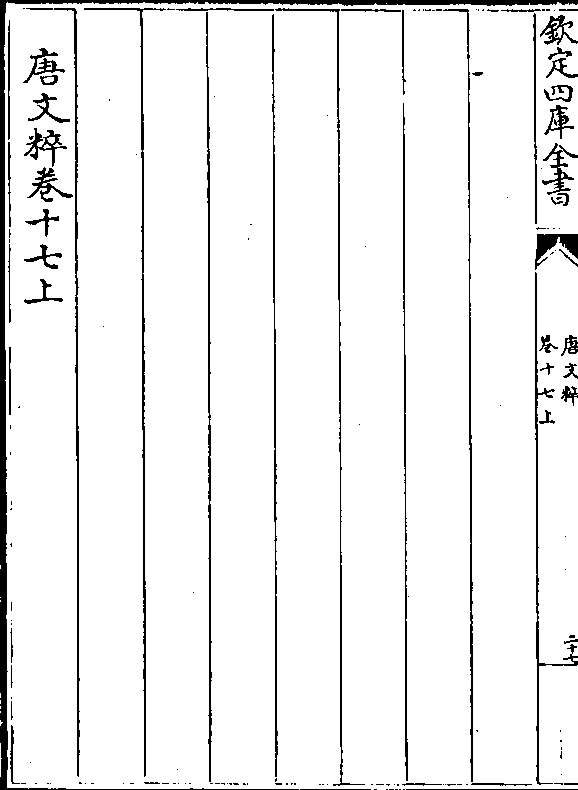 欽定四庫全書
唐文粹
卷十七上
二十七
唐文粹卷十七上